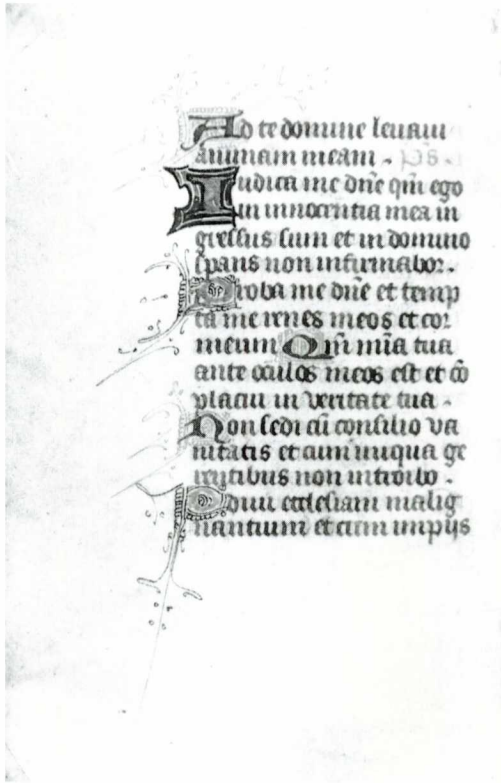 Ad te domine leuaui
animam meam . ps .
Iudica me dn̄e qm̄ ego
in innocentia mea in
gressus sum et in domino
spans non infirmabor .
Proba me dn̄e et temp
ta me renes meos et cor
meum Qm̄ mīa tua
ante oculos meos est et cō
placui in veritate tua .
Non sedi cū consilio va
nitatis et cum iniqua ge
rentibus non introibo .
Odiui ecclesiam malig
nantium et cum impijs